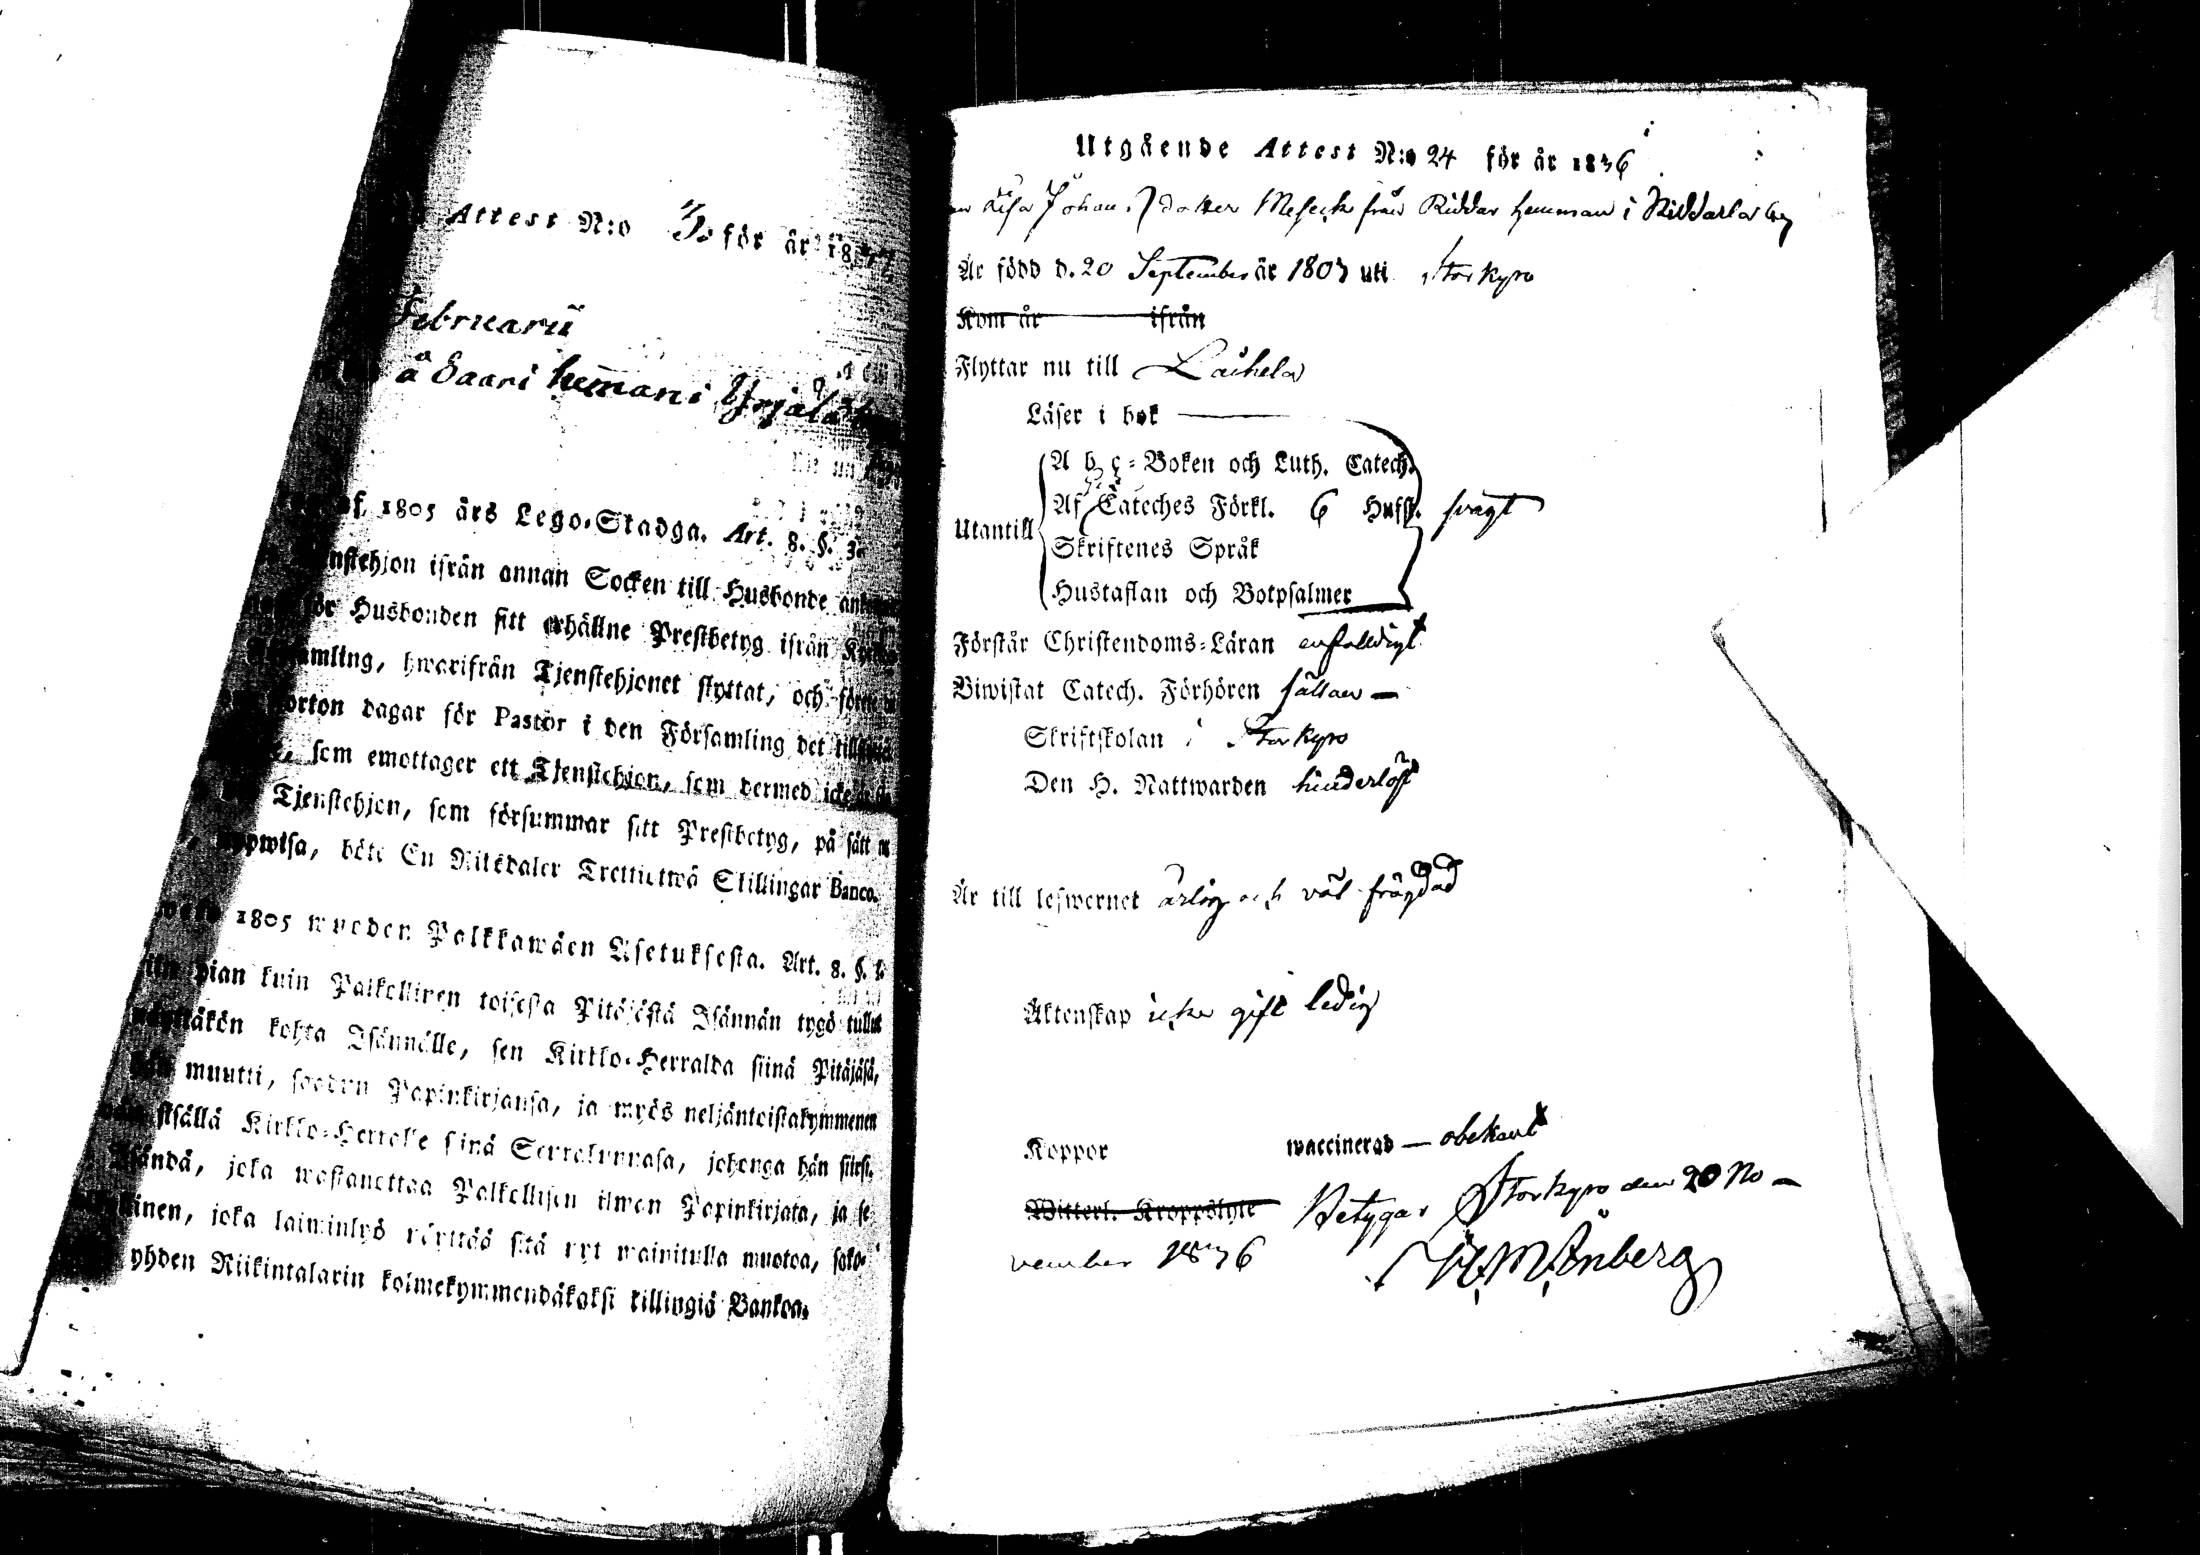 Attest N:o för år 18
Februarii
å Saari hemman i Yrjälä
af 1805 års Lego-Stadga. Art. 8. §. 3.
Tjenstehjon ifrån annan Socken till Husbonde
för Husbonden sitt erhållne Prestbetyg ifrån
Församling, hwarifrån Tjenstehjonet flyttat, och
fjorton dagar för Pastor i den Församling det
som emottager ett Tjenstehjon, som dermed icke
Tjenstehjon, som försummar sitt Prestbetyg, på sätt
uppwisa, böte En Riksdaler Trettiotwå Skillingar Banco.
1805 wuoden Palkkawäen Asetuksesta. Art. 8. §.
pian kuin Palkollinen toisesta Pitäjästä Isännän tygö tullut
näyttäkön kohta Isännälle, sen Kirkko-Herralda siinä Pitäjäsä,
muutti, saadun Papinkirjansa, ja myös neljäntoistakymmenen
sisällä Kirkko-Herralle siinä Seurakunnasa, johonga hän siirsi.
Isändä, joka wastanottaa Palkollisen ilman Papinkirjata, ja se
joka laiminlyö näyttää sitä nyt mainitulla muotoa, sako-
yhden Riikintalarin kolmekymmendäkaksi killingiä Bankoa.
Utgående Attest N:o 24 för år 1836
Lisa Johans dotter från Riddar hemman i Riddarla by
Är född d. 20 September år 1807 uti Storkyro
Kom år ifrån
Flyttar nu till Laihela
Läser i bok
A b c-Boken och Luth. Catech.
Utantill Af Cateches Förkl. 6 Hufst. svagt
Skriftenes Språk
Hustaflan och Botpsalmer
Förstår Christendoms-Läran enfalldigt
Biwistat Catech. Förhören sällan —
Skriftskolan i Storkyro
Den H. Nattwarden hinderlöst
Är till lefwernet ärlig och väl frägdad
Äktenskap icke gift ledig
Koppor waccinerad — obekant
Witterl. Kroppslyte Betygar Storkyro den 20 No-
vember 1836